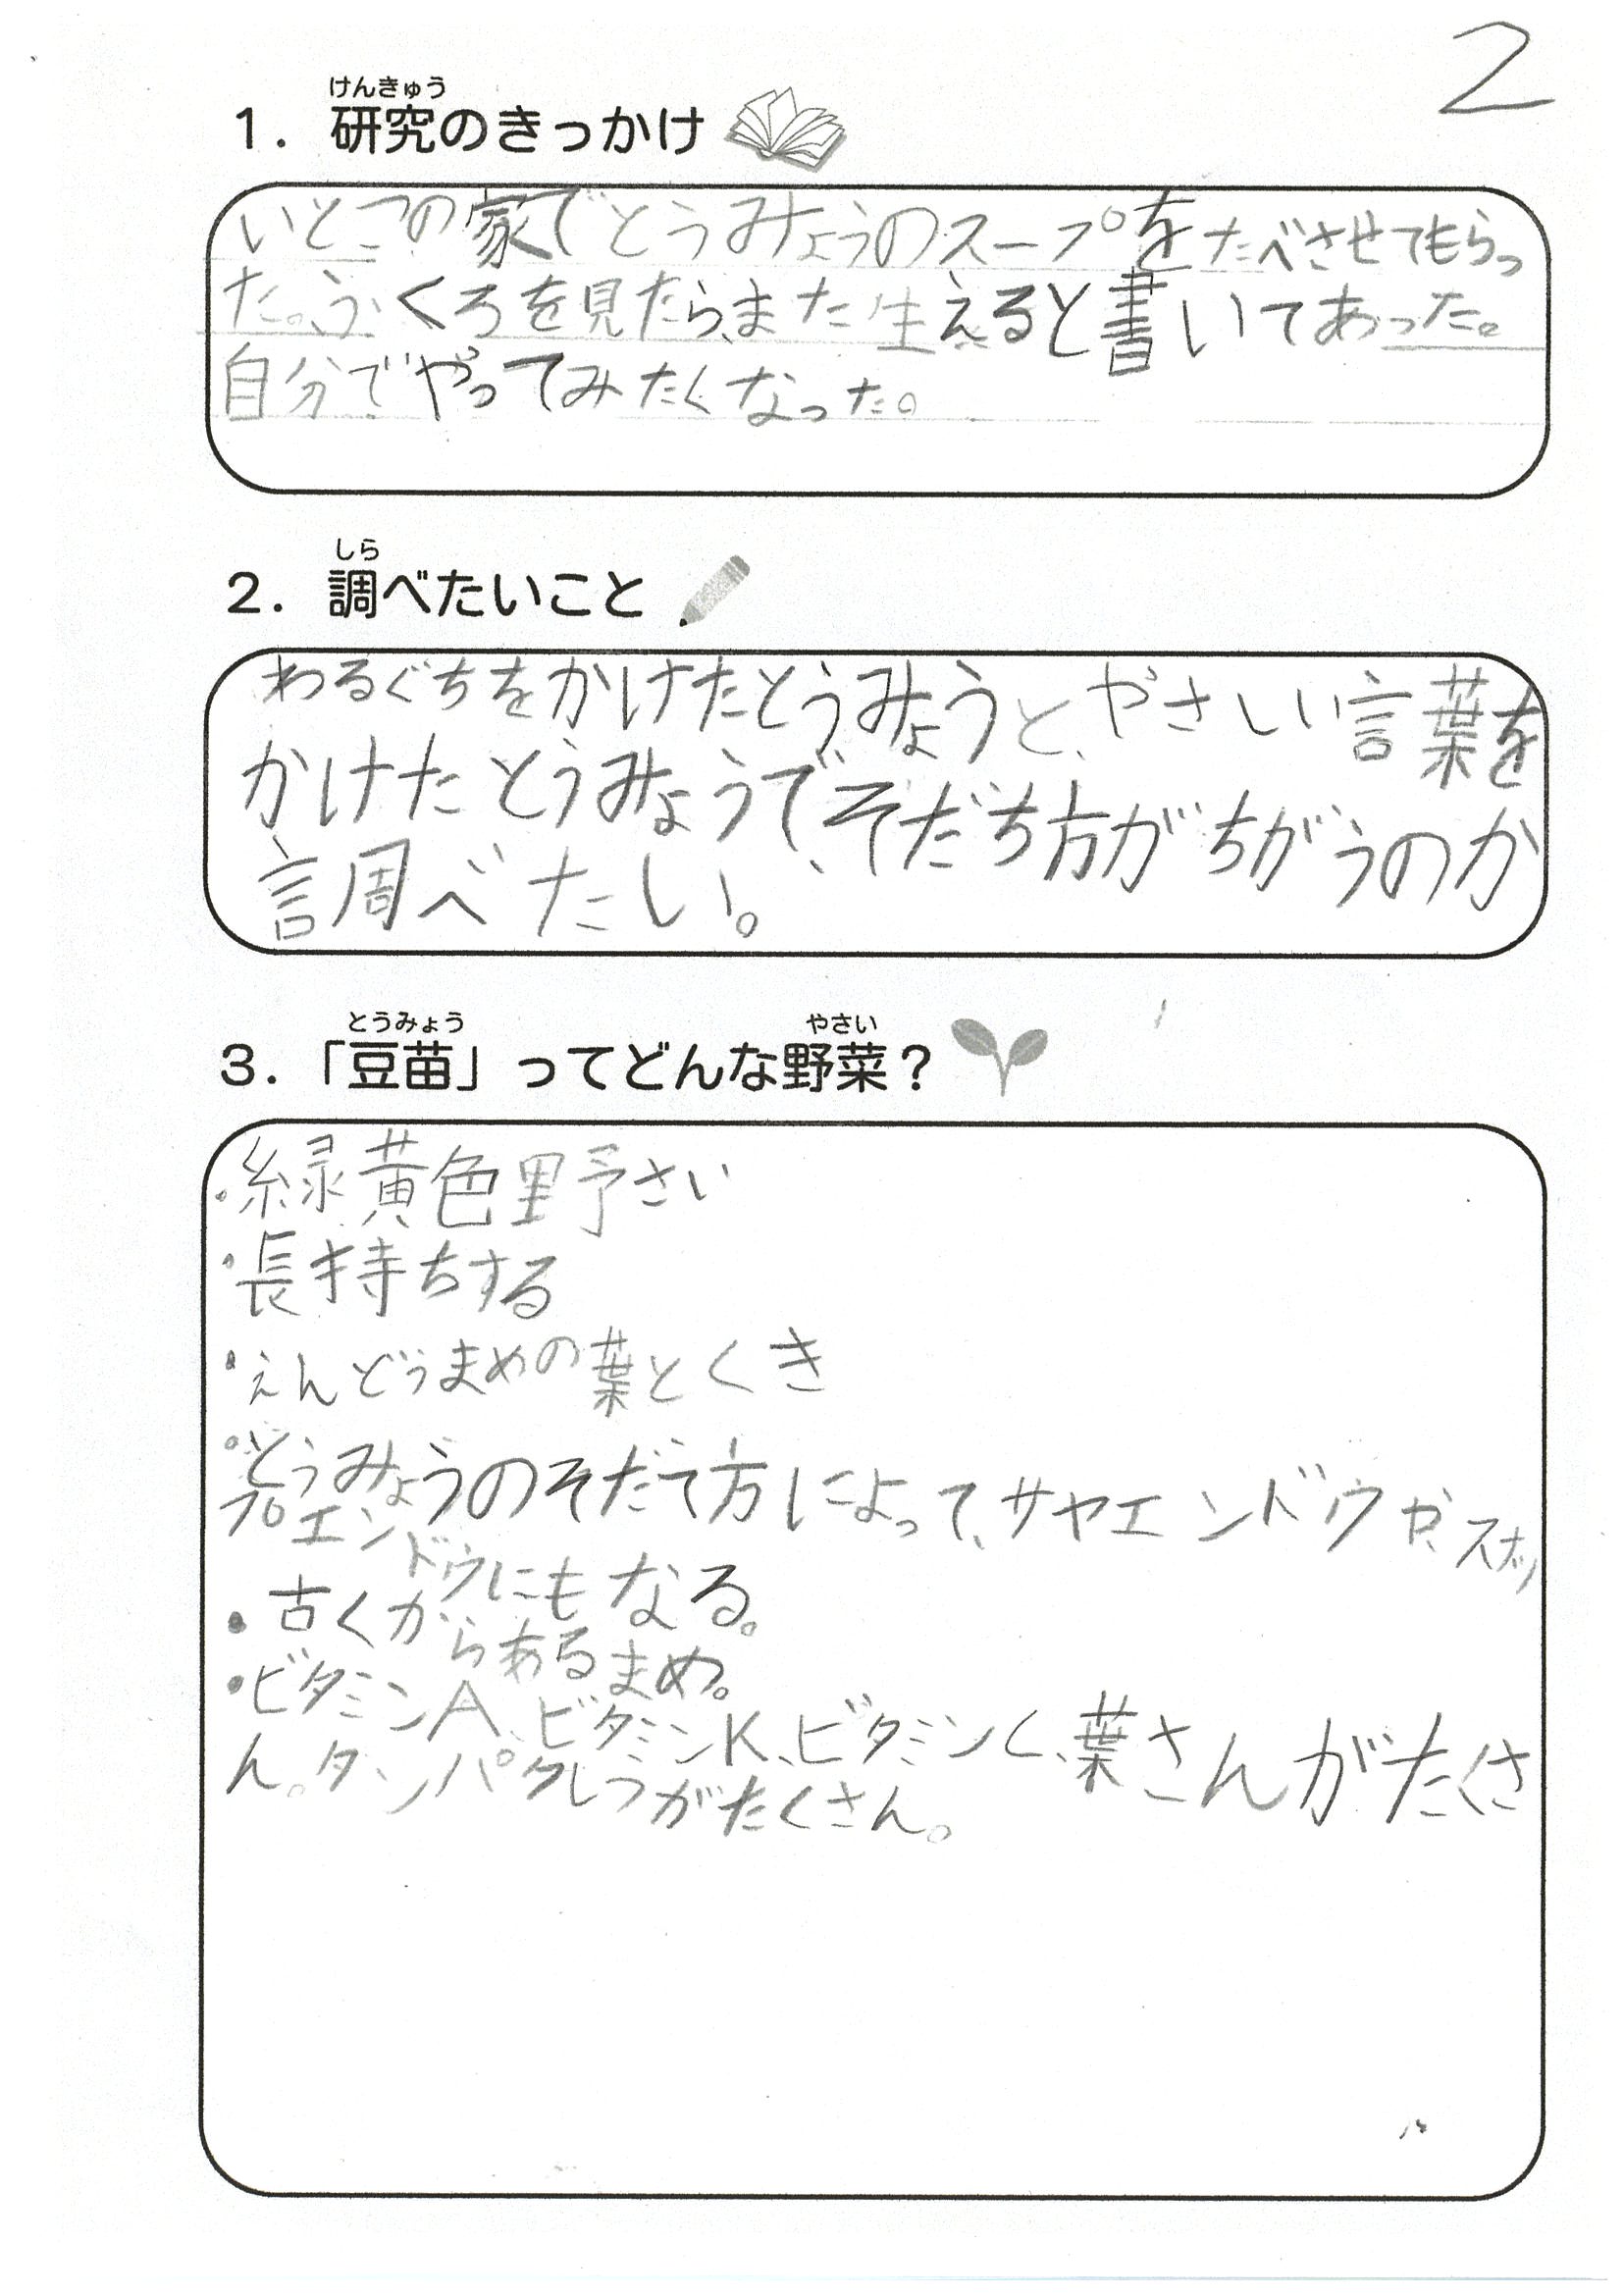 2
けんきゅう
1. 研究のきっかけ
いとこの家でとうみょうのスープをたべさせてもらっ
た。ふくろを見たら、また生えると書いてあった。
自分でやってみたくなった。
しら
2. 調べたいこと
わるぐちをかけたとうみょうと、やさしい言葉を
かけたとうみょうで、そだち方がちがうのか
調べたい。
とうみょう やさい
3.「豆苗」ってどんな野菜？
・緑黄色野さい
・長持ちする
・えんどうまめの葉とくき
・とうみょうのそだて方によって、サヤエンドウか、スナッ
プエンドウにもなる。
・古くからあるまめ。
・ビタミンA、ビタミンK、ビタミンC、葉さんがたくさ
ん。タンパクしつがたくさん。